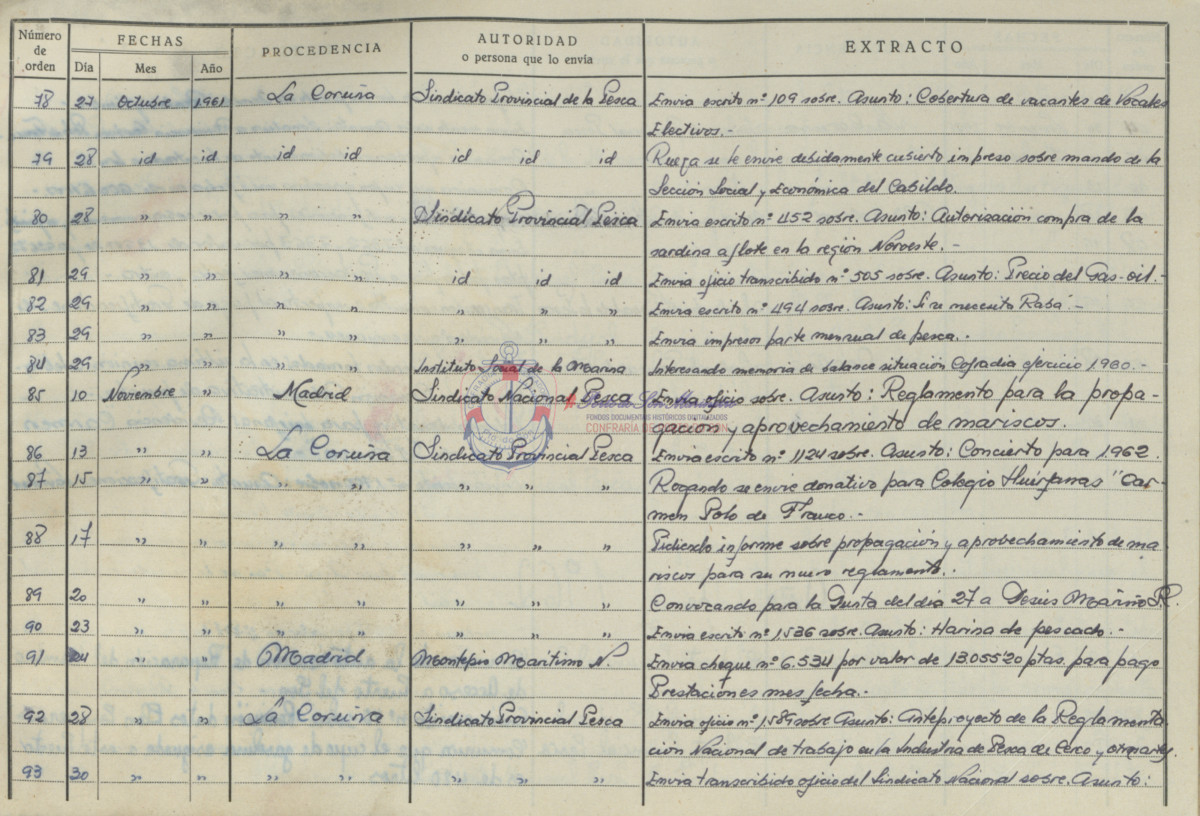 Número de orden FECHAS PROCEDENCIA AUTORIDAD o persona que lo envía EXTRACTO
Día Mes Año
78 27 Octubre 1.961 La Coruña Sindicato Provincial de la Pesca Envia escrito nº 109 sobre. Asunto: Cobertura de vacantes de Vocales
Electivos.-
79 28 id id id id id id id Ruega se le envie debidamente cubierto impreso sobre mando de la
Sección Social y Económica del Cabildo.
80 28 " " " " Sindicato Provincial Pesca Envia escrito nº 452 sobre. Asunto: Autorización compra de la
sardina a flote en la región Noroeste.-
81 29 " " " " id id id Envia oficio transcribido nº 505 sobre. Asunto: Precio del Gas-oil.-
82 29 " " " " " " " Envia escrito nº 494 sobre. Asunto: Si se necesita Raba.-
83 29 " " " " " " " Envia impresos parte mensual de pesca.-
84 29 Instituto Social de la Marina Interesando memoria de balance situación Cofradia ejercicio 1960.-
85 10 Noviembre " Madrid Sindicato Nacional Pesca Envia oficio sobre. Asunto: Reglamento para la propa-
gación y aprovechamiento de mariscos.
FONDOS DOCUMENTAIS HISTÓRICOS DIGITALIZADOS
CONFRARÍA DE
86 13 " " La Coruña Sindicato Provincial Pesca Envia escrito nº 1124 sobre. Asunto: Concierto para 1.962.
87 15 " " " " " " " Rogando se envie donativo para Colegio Huérfanas "Car-
men Polo de Franco.-
88 17 " " " " " " " Pidiendo informe sobre propagación y aprovechamiento de ma-
riscos para su nuevo reglamento.-
89 20 " " " " " " " Convocando para la Junta del dia 27 a Jesús Mariño R.
90 23 " " " " " " " Envia escrito nº 1.536 sobre. Asunto: Harina de pescado.-
91 24 " " Madrid Montepio Maritimo N. Envia cheque nº 6.534 por valor de 13.055'20 ptas. para pago
Prestaciones mes fecha.-
92 28 " " La Coruña Sindicato Provincial Pesca Envia oficio nº 1,589 sobre Asunto: Anteproyecto de la Reglamenta-
ción Nacional de trabajo en la Industria de Pesca de Cerco y otras artes.
93 30 " " " " " " " Envia transcribido oficio del Sindicato Nacional sobre. Asunto: